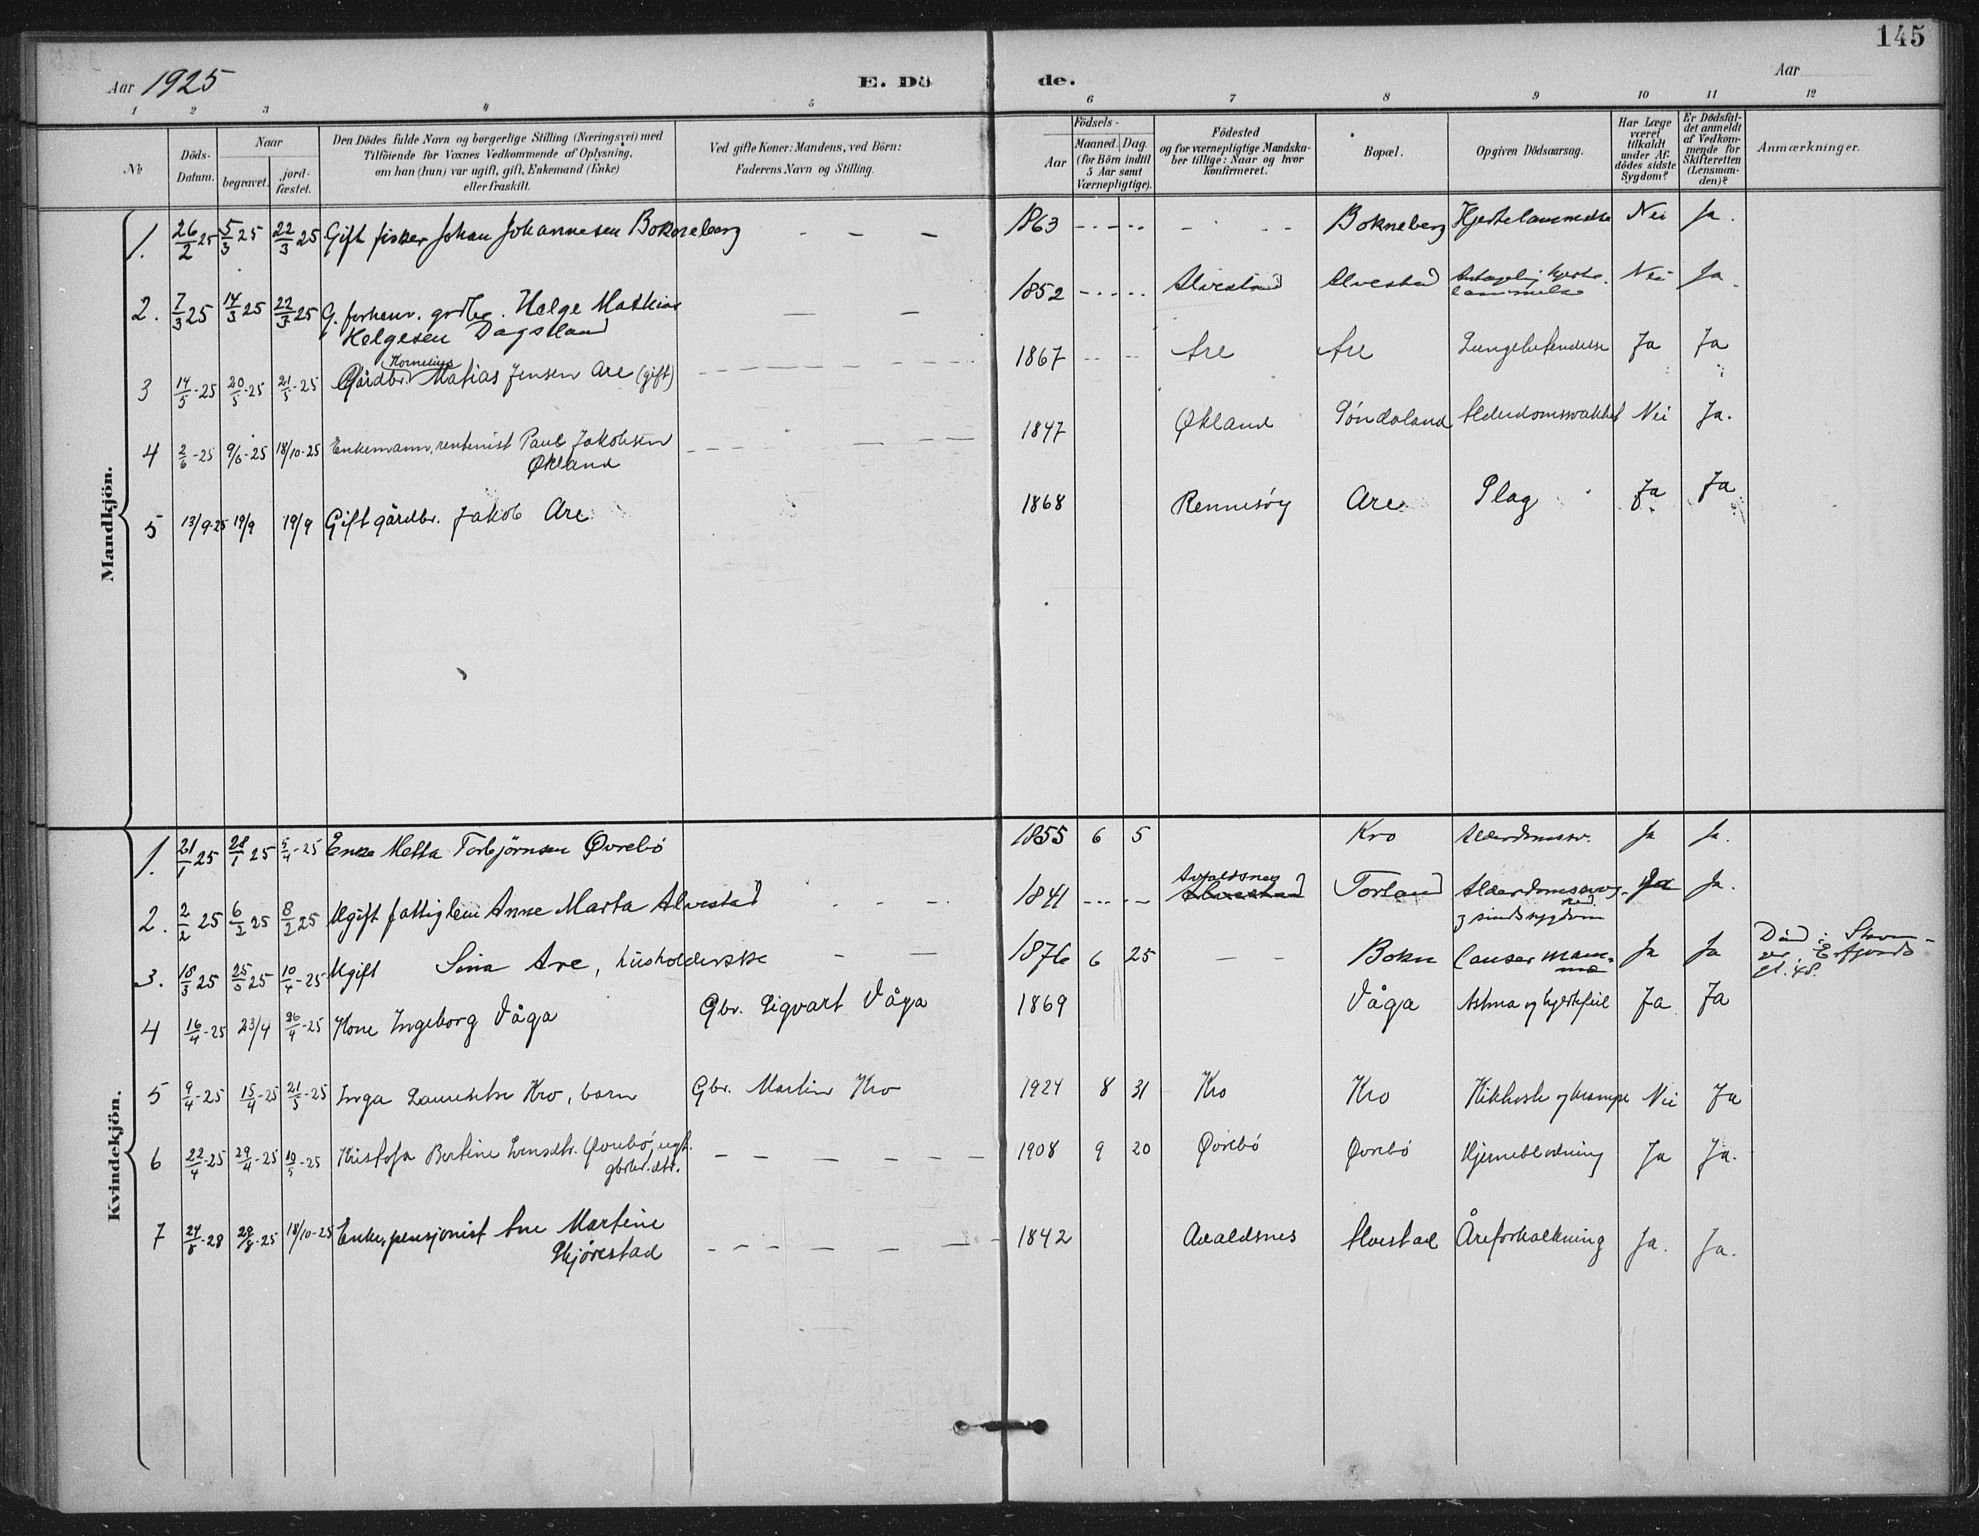 145
Aar 1925 E. Dö de. Aar
1 2 3 4 5 6 7 8 9 10 11 12
№
Döds-
Datum.
Naar
begravet.
jord-
fæstet.
Den Dödes fulde Navn og borgerlige Stilling (Næringsvei) med
Tilföiende for Voxnes Vedkommende af Oplysning,
om han (hun) var ugift, gift, Enkemand (Enke)
eller fraskilt.
Ved gifte Koner: Mandens, ved Börn:
Faderens Navn og Stilling.
Födsels-
Aar
Maaned. Dag.
(for Börn indtil
5 Aar samt
Værnepligtige).
Födested
og for værnepligtige Mandska-
ber tillige: Naar og hvor
konfirmeret.
Bopæl.
Opgiven Dödsaarsag.
Har Læge
været
tilkaldt
under Af-
dödes sidste
Sygdom?
Er Dödsfal-
det anmeldt
af Vedkom-
mende for
Skifteretten
(Lensman-
den)?
Anmærkninger.
Mandkjön.
1. 26/2 25 5/3 25 22/3 25 Gift fisker Johan Johannesen Bokneberg - - - 1863 - - - - Bokneberg Hjertelammelse Nei Ja.
2. 7/3 25 14/3 25 22/3 25 G. forhenv. grdbr. Helge Mathias
Helgesen Dagsland - - 1852 Alvestad Alvestad Antagelig hjerte-
lammelse Nei Ja.
Kornelius
3 14/5-25 20/5-25 21/5-25 Gårdbr. Matias Jensen Are (gift) 1867 Are Are Lungebetendelse Ja Ja
4 2/6-25 9/6-25 18/10-25 Enkemann, rentenist Paul Jakobsen
Økland 1847 Økland Søndaland Alderdomssvakhet Nei Ja.
5 13/9-25 19/9 19/9 Gift gårdbr. Jakob Are 1868 Rennesøy Are Slag Ja Ja
Kvindekjön.
1. 21/1 25 28/1 25 5/4-25 Enke Metta Torbjørnsen Øvrebø 1855 6 5 Kro Alderdomssv. Ja Ja.
2. 2/2 25 6/2 25 8/2 25 Ugift fattiglem Anne Marta Alvestad - - - 1841 Avaldsnes
Alvestad Torland Ja Ja.
sindssygdom
3. 18/3 25 25/3 25 10/4-25 Ugift Sina Are, husholderske - - 1876 6 25 - - Bokn Cancer mam-
mae Ja Ja Død i Stavan-
ger.
4 16/4-25 23/4 26/4-25 Kone Ingeborg Våga Gbr. Sigvart Våga 1869 Våga Astma og hjertefeil Ja Ja
5 9/4-25 15/4-25 21/5-25 Inga Lauritse Kro, barn Gbr. Martin Kro 1924 8 31 Kro Kro Kikhoste og krampe Nei Ja
6 22/4-25 29/4-25 10/5-25 Kristofa Bertine Øvrebø, ugt.
gbrbr. dtr. 1908 9 20 Øvrebø Øvrebø Hjerneblødning Ja Ja.
7 24/8-28 29/8-25 18/10-25 Enke, pensjonist Ane Martine
Hjørestad 1842 Avaldsnes Alvestad Åreforkalkning Ja. Ja.